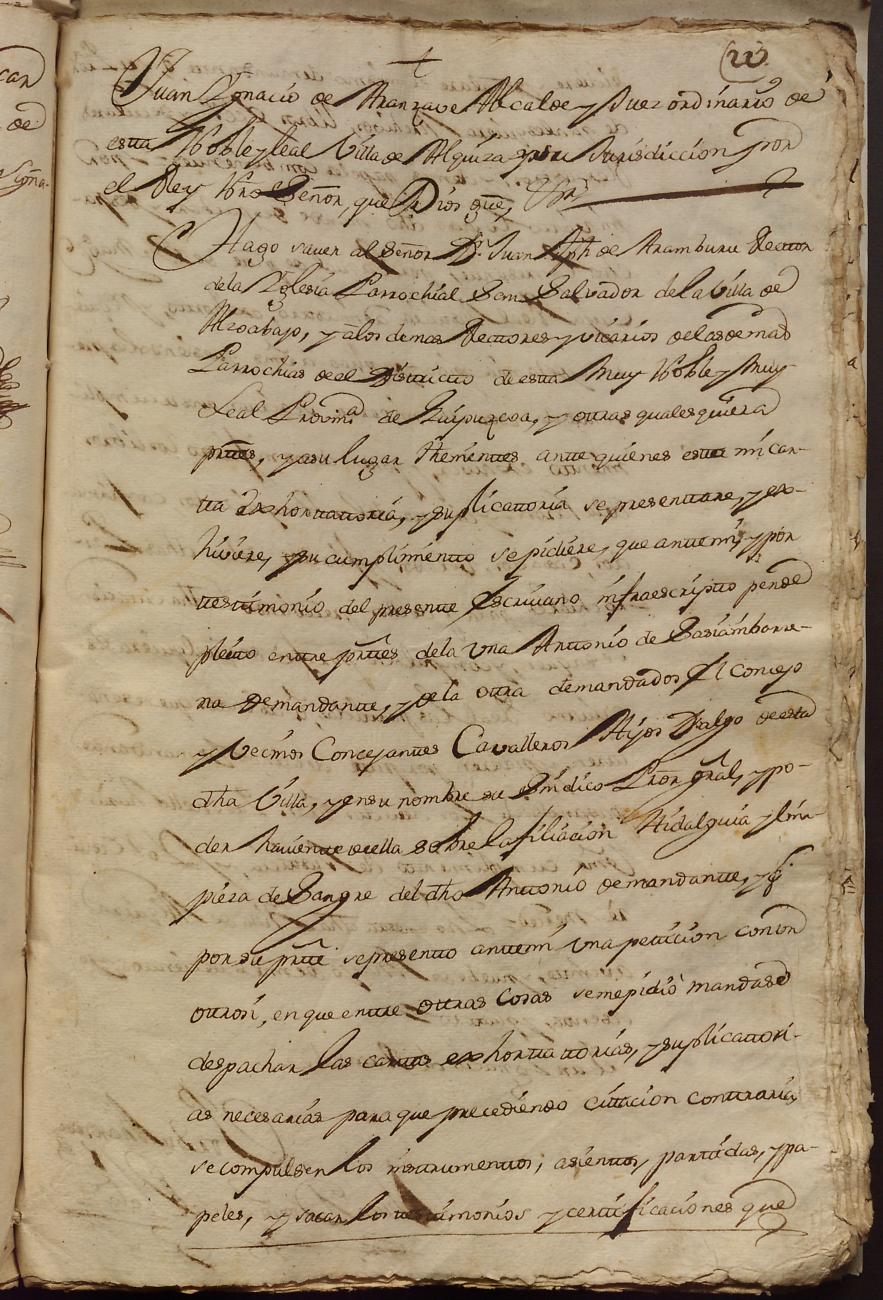 +
Juan Ygnacio de Aranzave Alcalde y Juez ordinario de
esta Noble y leal Villa de Alquiza y su Jurisdiccion por
el Rey Nro Señor, que Dios gue,
Hago saver al Señor Dn. Juan Aph de Aramburu Rector
de la Yglesia Parrochial San Salvador de la Villa de
Alzoabajo, y a los demas Rectores y vicarios de las demas
Parrochias de el Districtto de esta Muy Noble y Muy
Leal Provina de Guipuzcoa, y otras qualesquiera
prttes, y a su lugar thenientes antte quienes estta mi car-
tta exhorttattoria, y suplicattoria se presenttare, y ex-
hiviere, y su cumplimientto se pidiere, que antte mi, y por
testimonio del presentte Escrivano infraescripto pende
pleitto enttre prttes de la una Antonio de Sasiambarre-
na demandantte, y de la otra demandados El Concejo
y Vecinos Concejanttes Cavalleros Hijos Dalgo de esta
dha Villa, y en su nombre su Sindico Pror gral, y po-
der havientte de ella sobre la filiacion Hidalguia y lim-
pieza de Sangre del dho Anttonio demandantte, y q
por su prtte se presentto antte mi una petticion con un
ottrosi, en que enttre ottras Cosas se me pidio mandase
despachar las cartas exhorttattorias, y suplicattori-
as necesarias para que precediendo cittacion conttraria
se compulsen los insttrumenttos, asienttos, parttidas, y pa-
peles, y sacar los testtimonios y certtificaciones que